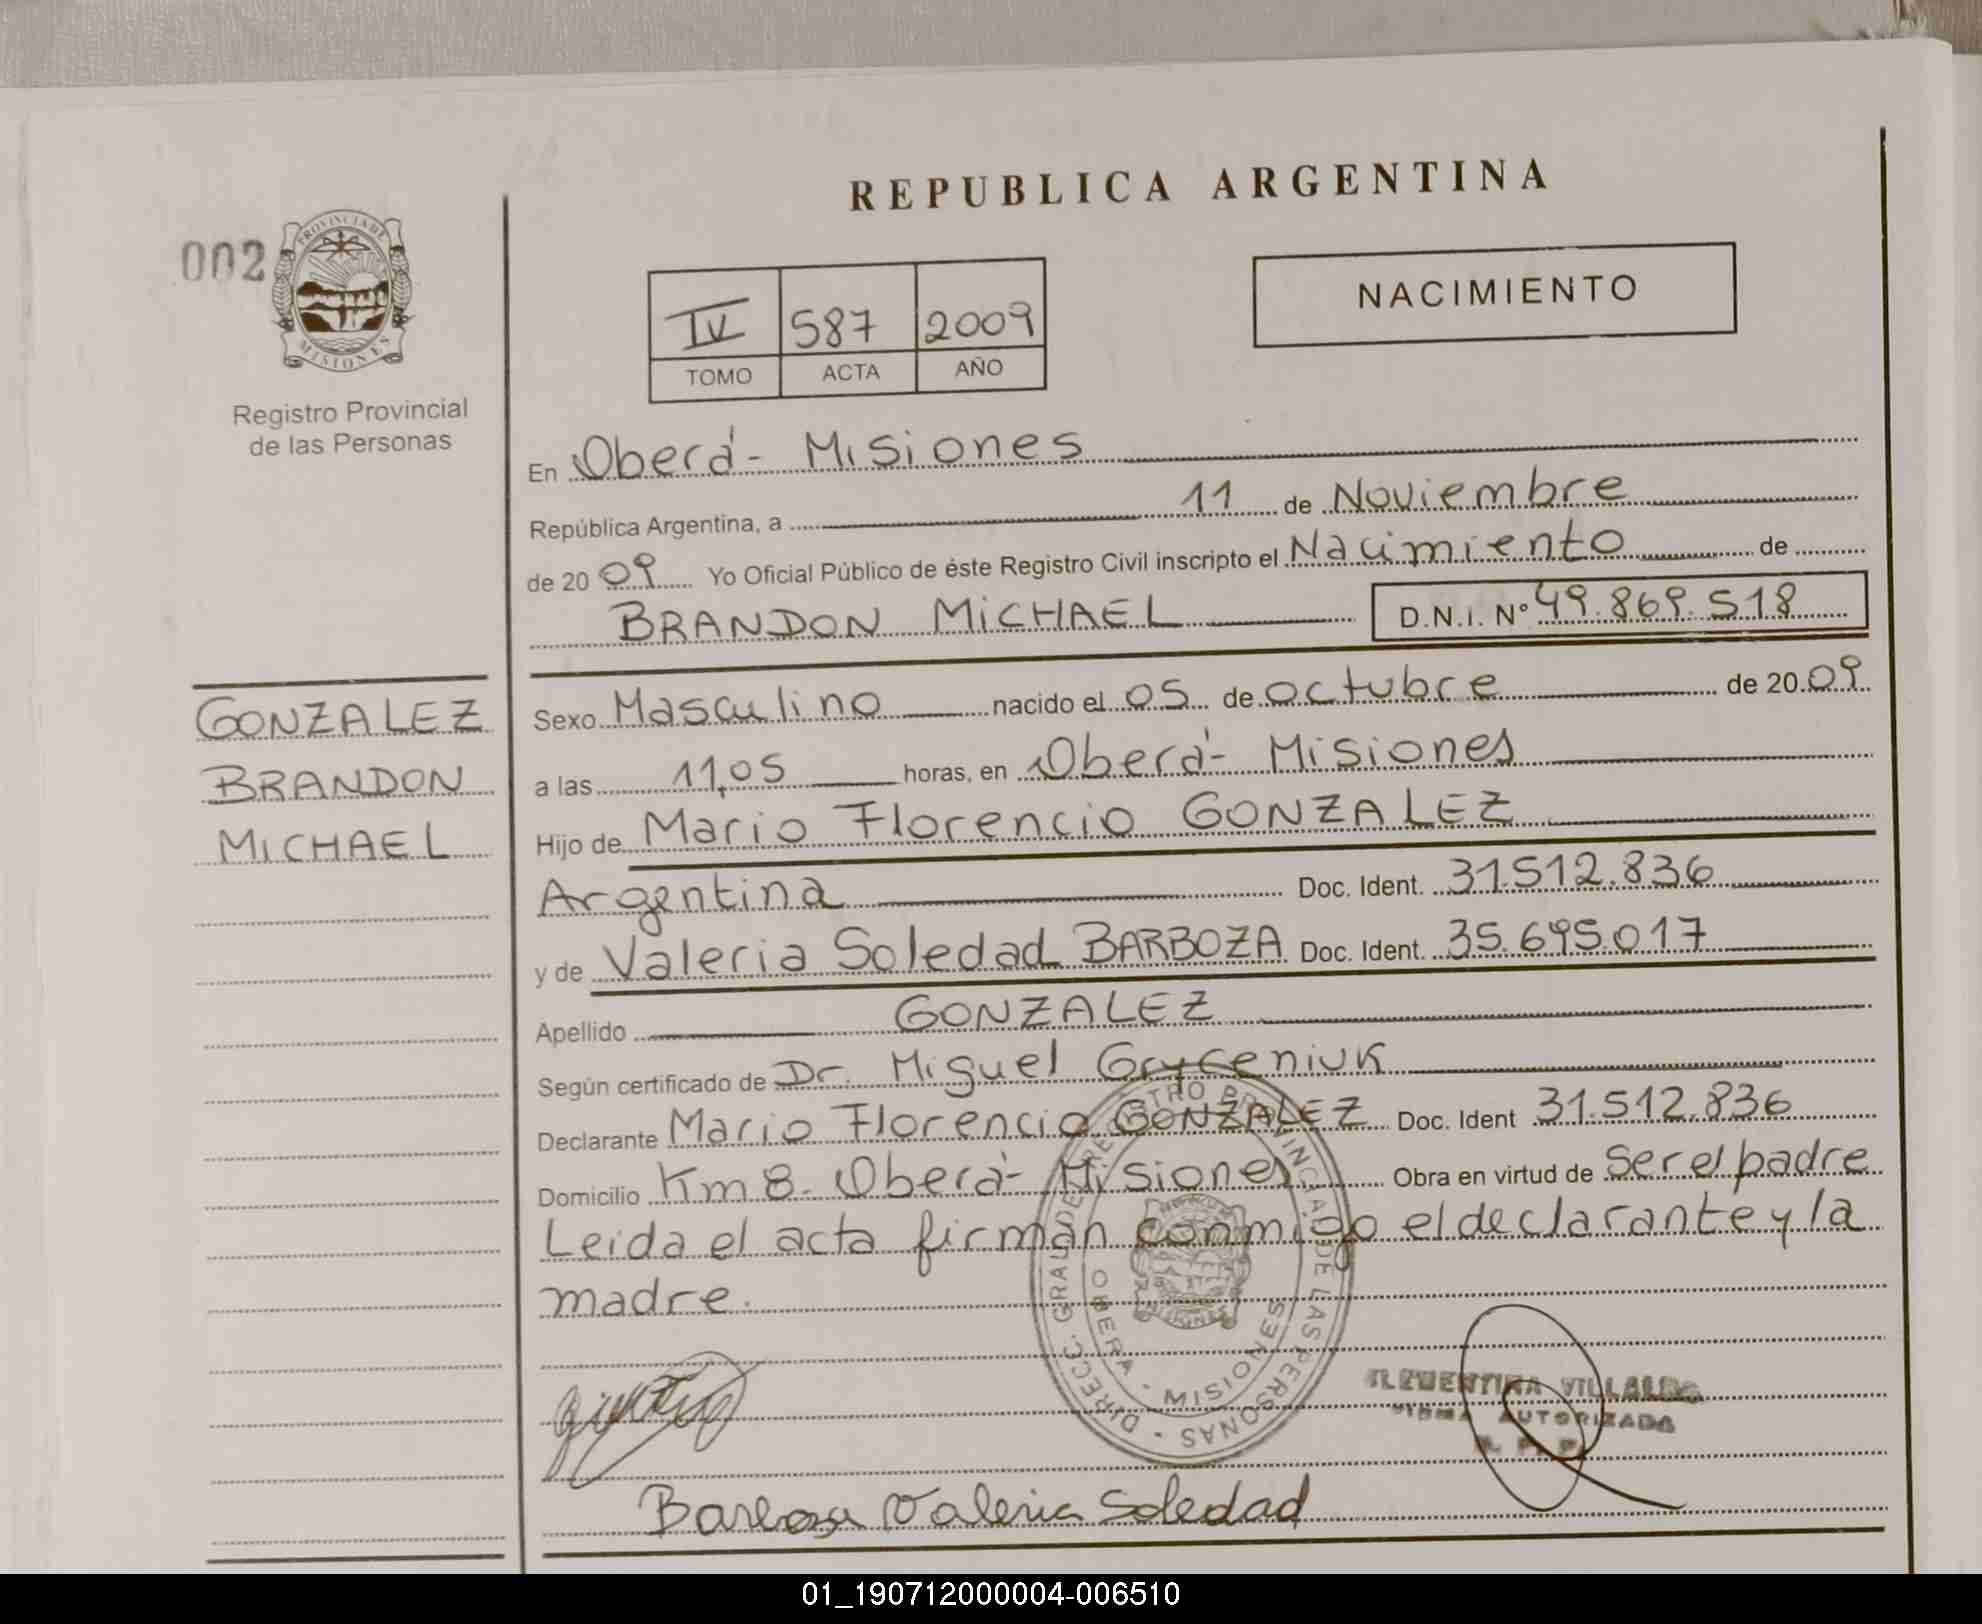 REPUBLICA ARGENTINA
002
PROVINCIA DE
MISIONES
Registro Provincial
de las Personas
IV 587 2009
TOMO ACTA AÑO
NACIMIENTO
En Oberá - Misiones
República Argentina, a 11 de Noviembre
de 20 09 Yo Oficial Público de éste Registro Civil inscripto el Nacimiento de
BRANDON MICHAEL D.N.I. Nº 49.869.518
GONZALEZ
BRANDON
MICHAEL
Sexo Masculino nacido el 05 de octubre de 20 09
a las 11,05 horas, en Oberá - Misiones
Hijo de Mario Florencio GONZALEZ
Argentina Doc. Ident. 31.512.836
y de Valeria Soledad BARBOZA Doc. Ident. 35.695.017
Apellido GONZALEZ
Según certificado de Dr. Miguel Gryceniuk
Declarante Mario Florencio GONZALEZ Doc. Ident 31.512.836
Domicilio Km 8. Oberá - Misiones Obra en virtud de Ser el padre
Leida el acta firman conmigo el declarante y la
madre.
DIRECC. GRAL. DE REGISTRO PROVINCIAL DE LAS PERSONAS
OBERA - MISIONES
CLEMENTINA VILLALBA
FIRMA AUTORIZADA
R. P. P.
Barboza Valeria Soledad
01_190712000004-006510